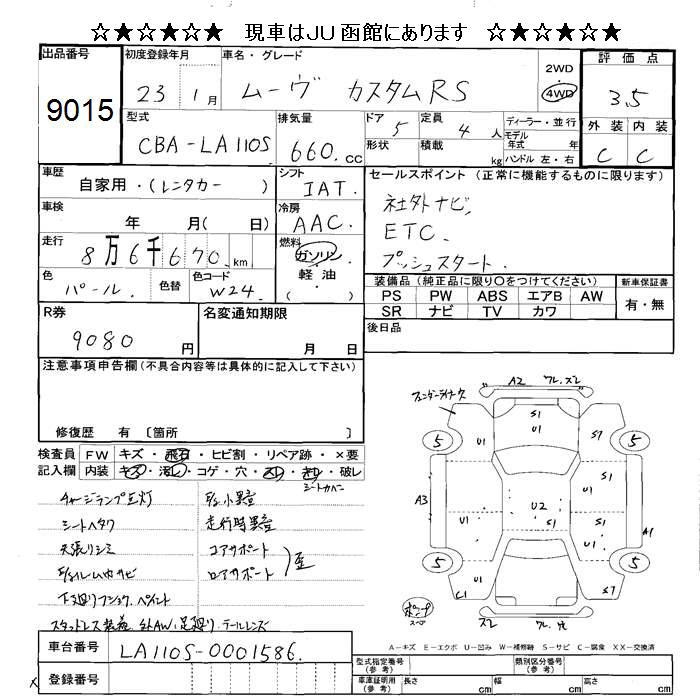 ☆★☆★☆★ 現車はJU函館にあります ☆★☆★☆★
出品番号 9015
初度登録年月 23年 1月
車名・グレード ムーヴ カスタムRS
2WD
4WD
評価点 3.5
外装 内装
C C
型式 CBA-LA110S
排気量 660.cc
ドア 5
形状
定員 4人
積載 kg
ディーラー・並行
モデル年式 年
ハンドル 左・右
車歴 自家用・(レンタカー )
シフト IAT.
車検 年 月( 日)
冷房 AAC.
走行 8万6千670.km
燃料 ガソリン・軽油
( )
色 パール. 色替
色コード W24.
セールスポイント(正常に機能するものに限ります)
社外ナビ.
ETC.
プッシュスタート.
装備品(純正品に限り○をつけてください)
PS PW ABS エアB AW
SR ナビ TV カワ
新車保証書
有・無
後日品
R券 9080円
名変通知期限 月 日
注意事項申告欄(不具合内容等は具体的に記入して下さい)
修復歴 有 〔箇所 〕
検査員記入欄
FW キズ・飛石・ヒビ割・リペア跡・×要
内装 キズ・汚レ・コゲ・穴・スレ・キレ・破レ
シートカバー
チャージランプ点灯
シートヘタリ
天張りシミ
下廻りフショク、ペイント
走行時異音
コアサポート
ロアサポート
歪
スタットレス装着
車台番号 LA110S-0001586.
登録番号
フェンダーライナーキズ
A2
S1
U1
U1
S1
5
5
A3
U1
U2
U1
S1
A1
U1
U1
5
5
C1
S7
ポンプ
スペア
A-キズ E-エクボ U-凹み W-補修跡 S-サビ C-腐食 XX-交換済
型式指定番号(参考)
類別区分番号(参考)
車庫証明用(参考) 長さ cm 幅 cm 高さ cm